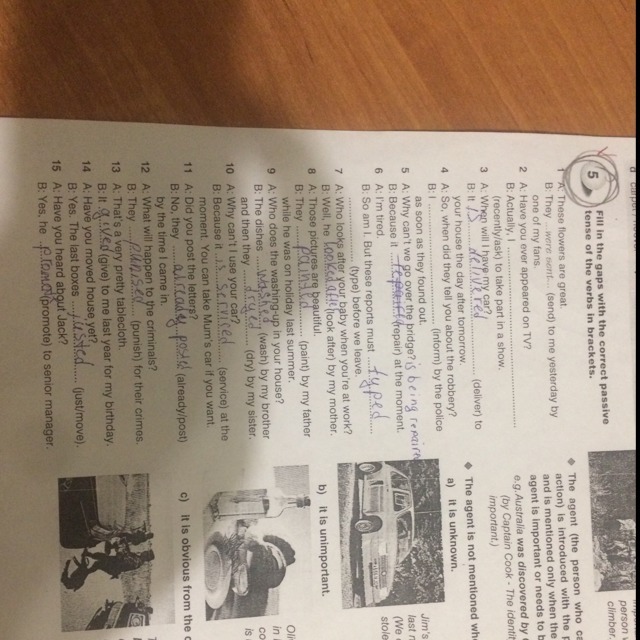 5 Fill in the gaps with the correct passive
tense of the verbs in brackets.
1 A: These flowers are great.
B: They ...were sent... (send) to me yesterday by
one of my fans.
2 A: Have you ever appeared on TV?
B: Actually, I ........................
(recently/ask) to take part in a show.
3 A: When will I have my car?
B: It is delivered (deliver) to
your house the day after tomorrow.
4 A: So, when did they tell you about the robbery?
B: I ........................ (inform) by the police
as soon as they found out.
5 A: Why can't we go over the bridge? is being repaire
B: Because it (repair) at the moment.
6 A: I'm tired.
B: So am I. But these reports must typed
........................ (type) before we leave.
7 A: Who looks after your baby when you're at work?
B: Well, he (look after) by my mother.
8 A: Those pictures are beautiful.
B: They painted (paint) by my father
while he was on holiday last summer.
9 A: Who does the washing-up in your house?
B: The dishes washed (wash) by my brother
and then they dryed (dry) by my sister.
10 A: Why can't I use your car?
B: Because it is serviced (service) at the
moment. You can take Mum's car if you want.
11 A: Did you post the letters?
B: No, they already posted (already/post)
by the time I came in.
12 A: What will happen to the criminals?
B: They punised (punish) for their crimes.
13 A: That's a very pretty tablecloth.
B: It gived (give) to me last year for my birthday.
14 A: Have you moved house yet?
B: Yes. The last boxes (just/move).
15 A: Have you heard about Jack?
B: Yes, he (promote) to senior manager.
person
climber.
◆ The agent (the person who
action) is introduced with the
and is mentioned only when the
agent is important or needs to
e.g. Australia was discovered by
(by Captain Cook - The
important.)
◆ The agent is not mentioned
a) it is unknown.
Jim's
last
(We
stole
b) it is unimportant.
c) it is obvious from the